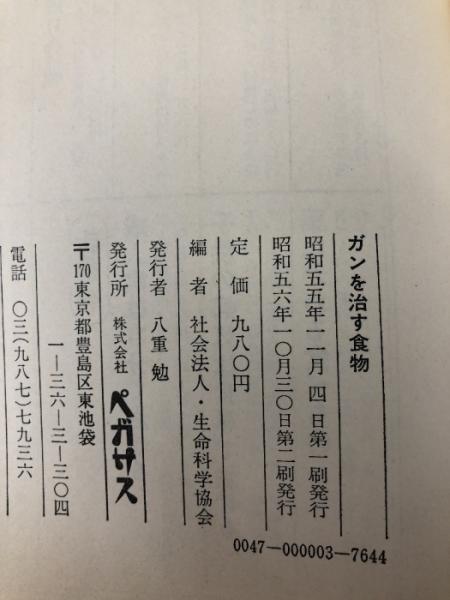 ガンを治す食物
昭和五五年一一月四日第一刷発行
昭和五六年一〇月三〇日第二刷発行
定価 九八〇円
編者 社会法人・生命科学協会
発行者 八重 勉
発行所 株式会社 ペガサス
〒170東京都豊島区東池袋
一―三六―三―三〇四
電話 〇三(九八七)七九三六
0047-000003-7644